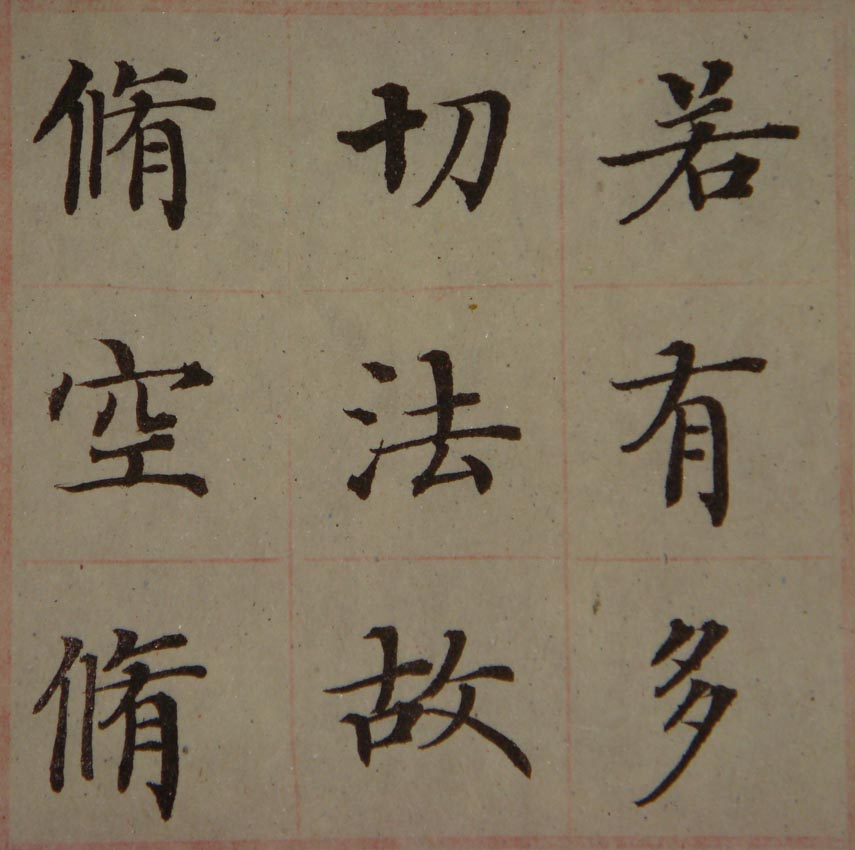 若有多
切法故
脩空脩